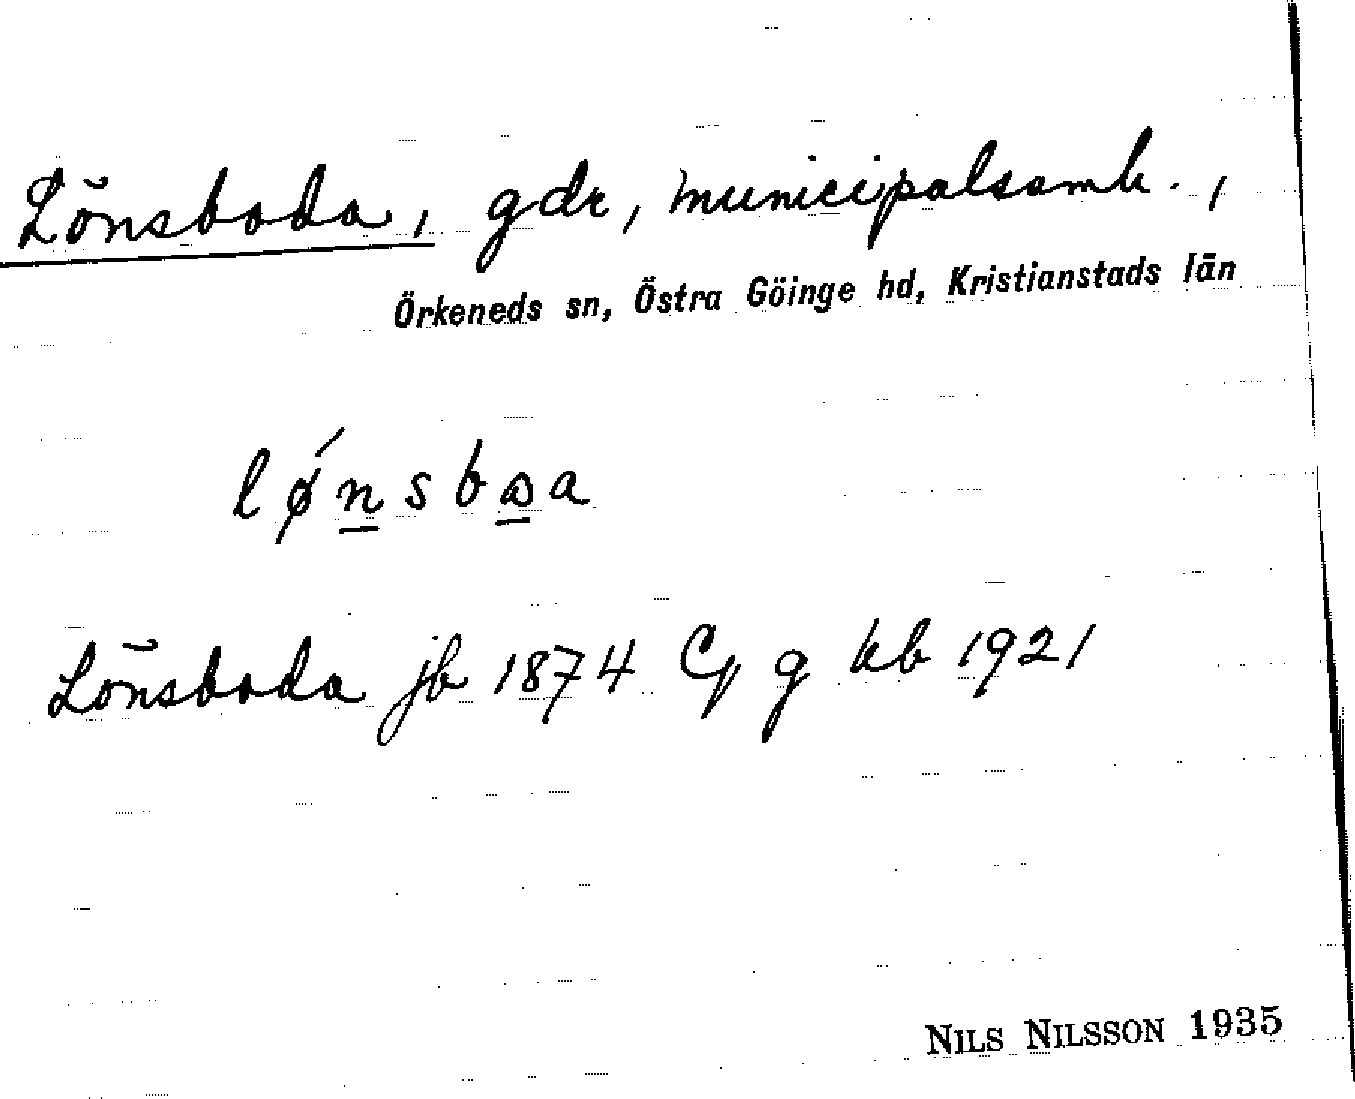 Lönsboda, gdr, municipalsamh.,
Örkeneds sn, Östra Göinge hd, Kristianstads län
lǿnsbɷa
Lönsboda jb 1874 Cp g kb 1921
NILS NILSSON 1935